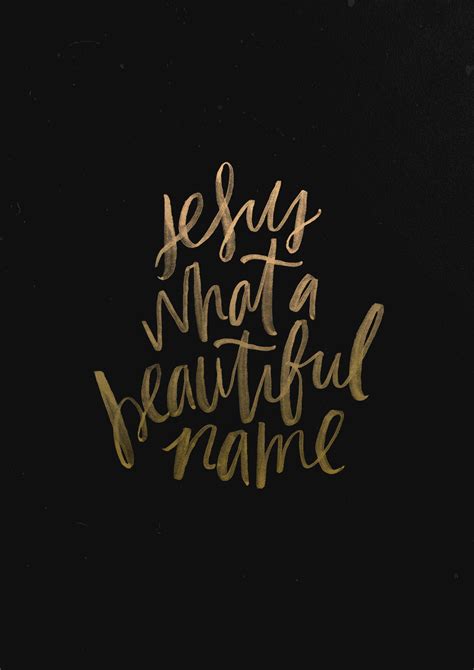 jesus
what a
beautiful
name